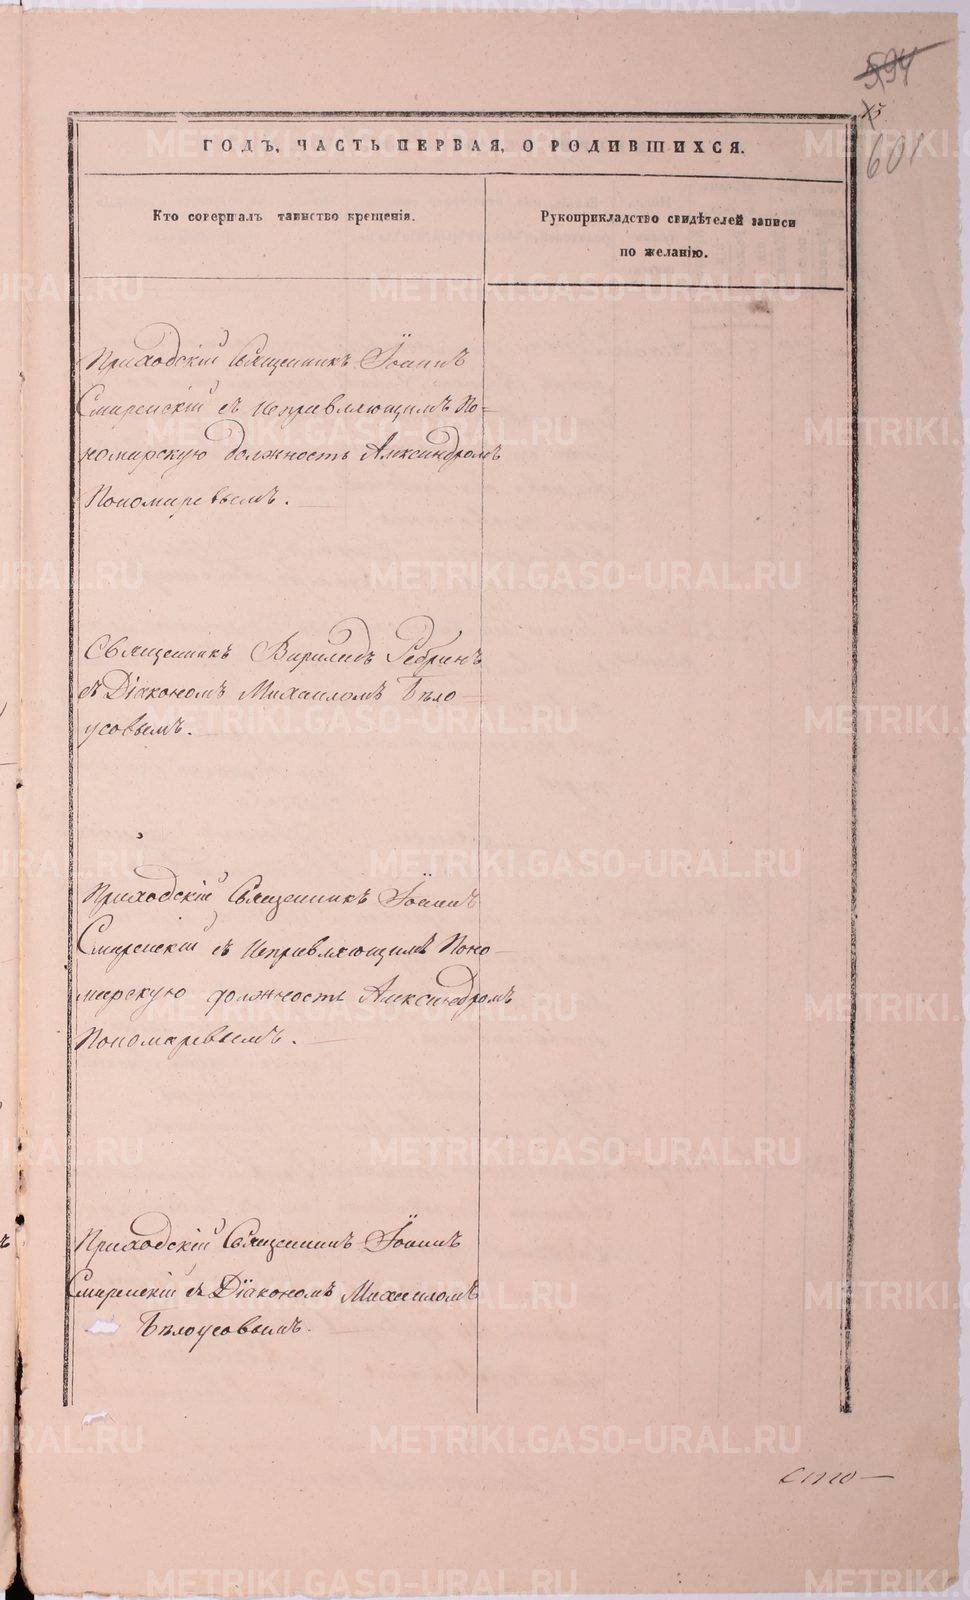 594
х5.
601
ГОДЪ, ЧАСТЬ ПЕРВАЯ, О РОДИВШИХСЯ.
Кто совершалъ таинство крещенія.
Рукоприкладство свидѣтелей записи
по желанію.
Приходскій Священникъ Іоаннъ
Смиренскій съ исправляющимъ По=
номарскую должность Александромъ
Пономаревымъ.
Священникъ Вирилидъ Ребринъ
съ Діакономъ Михаиломъ Бѣло
усовымъ.
Приходскій Священникъ Іоаннъ
Смиренскій съ исправляющимъ Поно-
марскую должность Александромъ
Пономаревымъ.
Приходскій Священникъ Іоаннъ
Смиренскій съ Діакономъ Михаиломъ
Бѣлоусовымъ.
METRIKI.GASO-URAL.RU